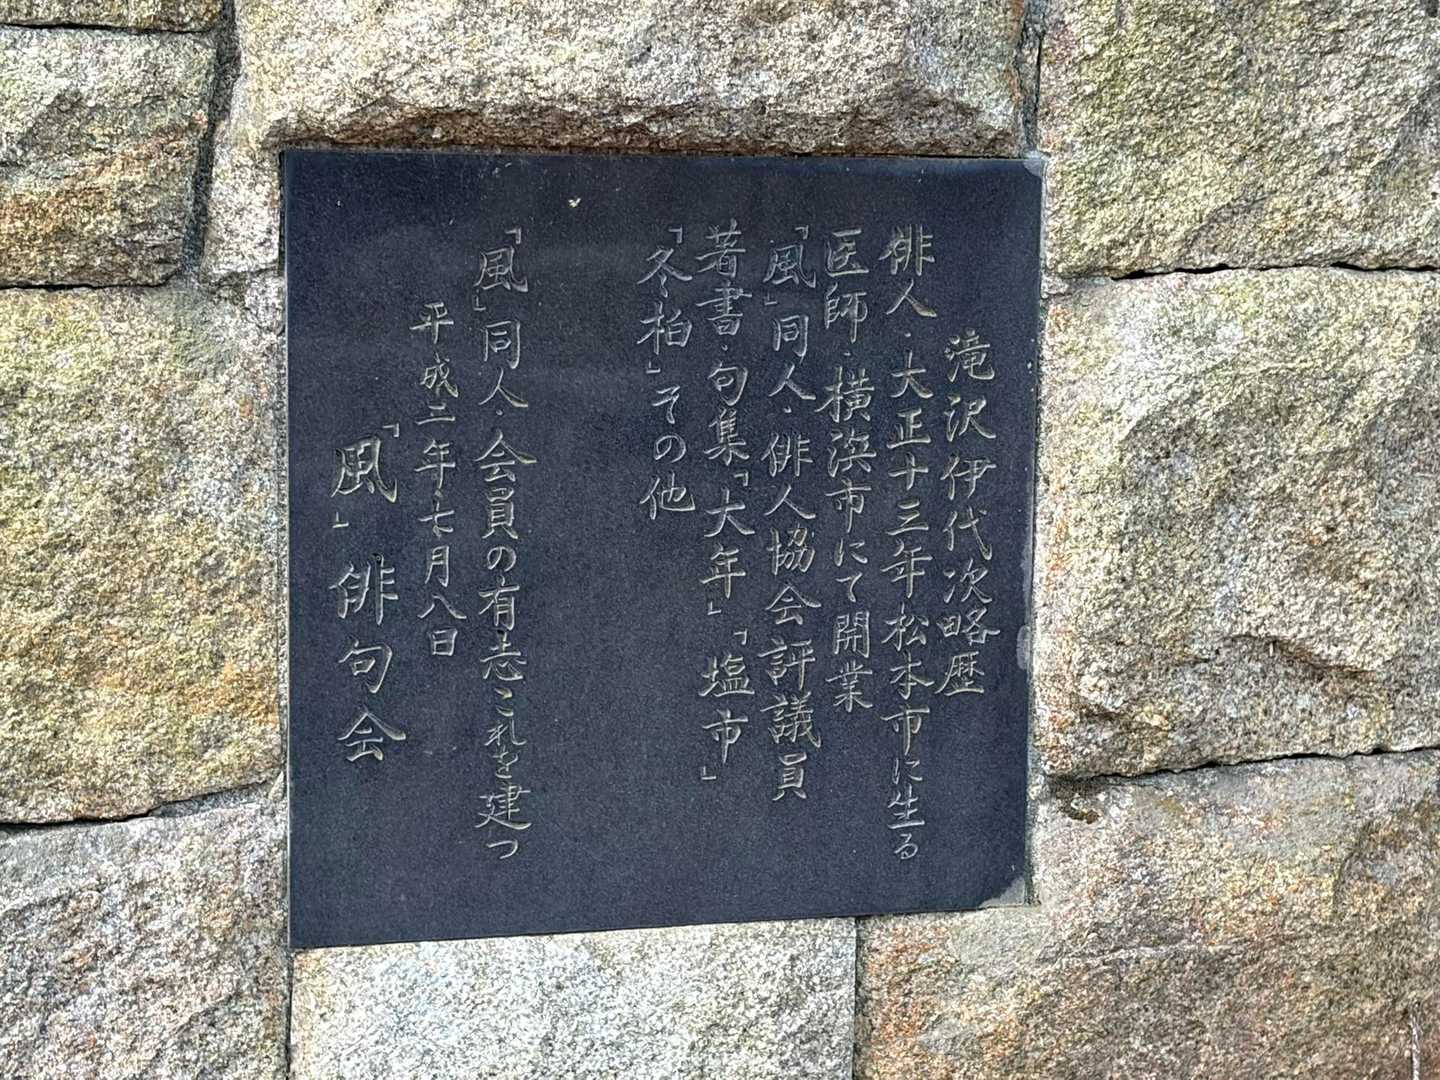 滝沢伊代次略歴
俳人・大正十三年松本市に生る
医師・横浜市にて開業
「風」同人・俳人協会評議員
著書・句集「大年」「塩市」
「冬柏」その他
「風」同人・会員の有志これを建つ
平成二年七月八日
「風」俳句会